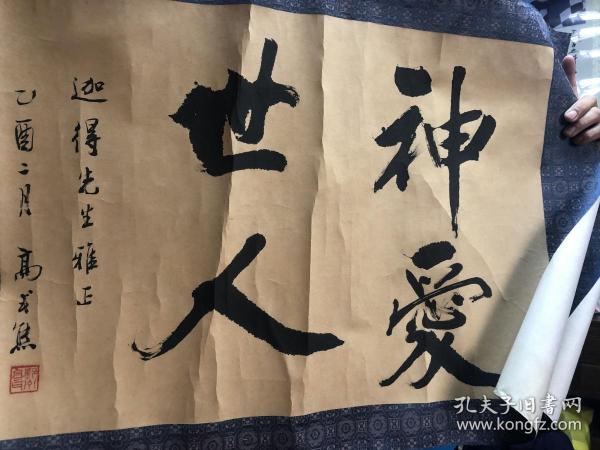 神愛
世人
迦得先生雅正
乙酉二月 高
孔夫子旧書网
www.kongfz.com